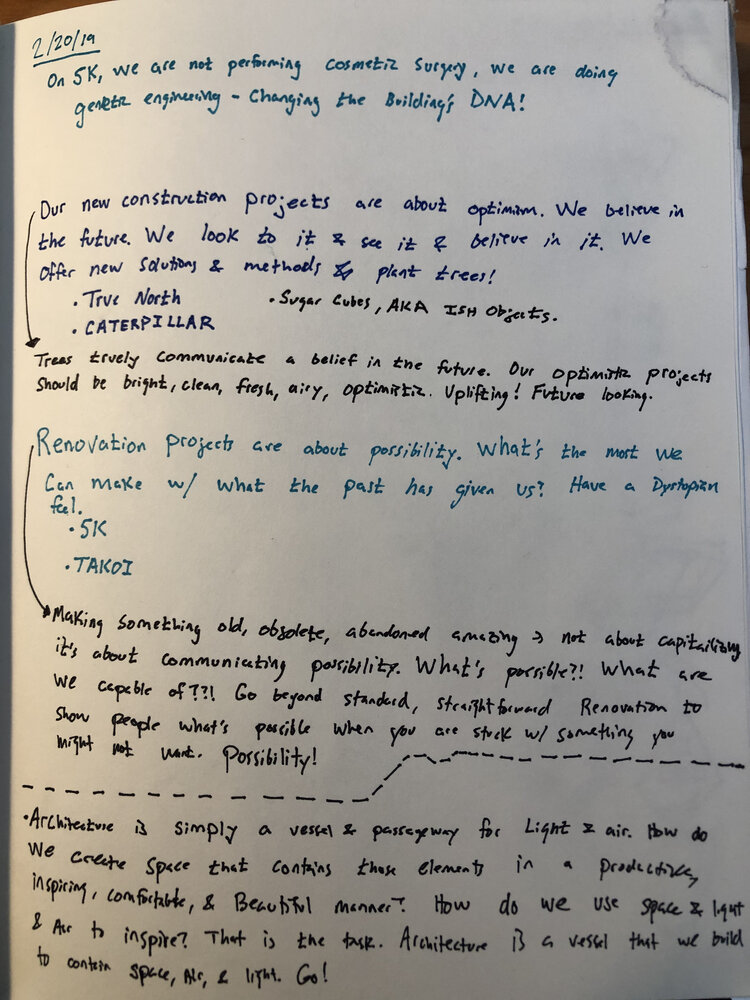 2/20/19
On 5K, we are not performing cosmetic surgery, we are doing
genetic engineering - Changing the Building's DNA!
Our new construction projects are about optimism. We believe in
the future. We look to it & see it & believe in it. We
offer new solutions & methods & plant trees!
• True North
• Sugar Cubes, AKA ISH Objects.
• CATERPILLAR
Trees truely communicate a belief in the future. Our optimistic projects
should be bright, clean, fresh, airy, optimistic. Uplifting! Future looking.
Renovation projects are about possibility. What's the most we
can make w/ what the past has given us? Have a Dystopian
feel.
• 5K
• TAKOI
Making something old, obsolete, abandoned amazing → not about capitailizing
it's about communicating possibility. What's possible?! What are
we capable of??! Go beyond standard, straightforward Renovation to
show people what's possible when you are stuck w/ something you
might not want. Possibility!
• Architecture is simply a vessel & passageway for Light & air. How do
we create space that contains those elements in a productive,
inspiring, comfortable, & Beautiful manner? How do we use space & light
& Air to inspire? That is the task. Architecture is a vessel that we build
to contain space, Air, & light. Go!